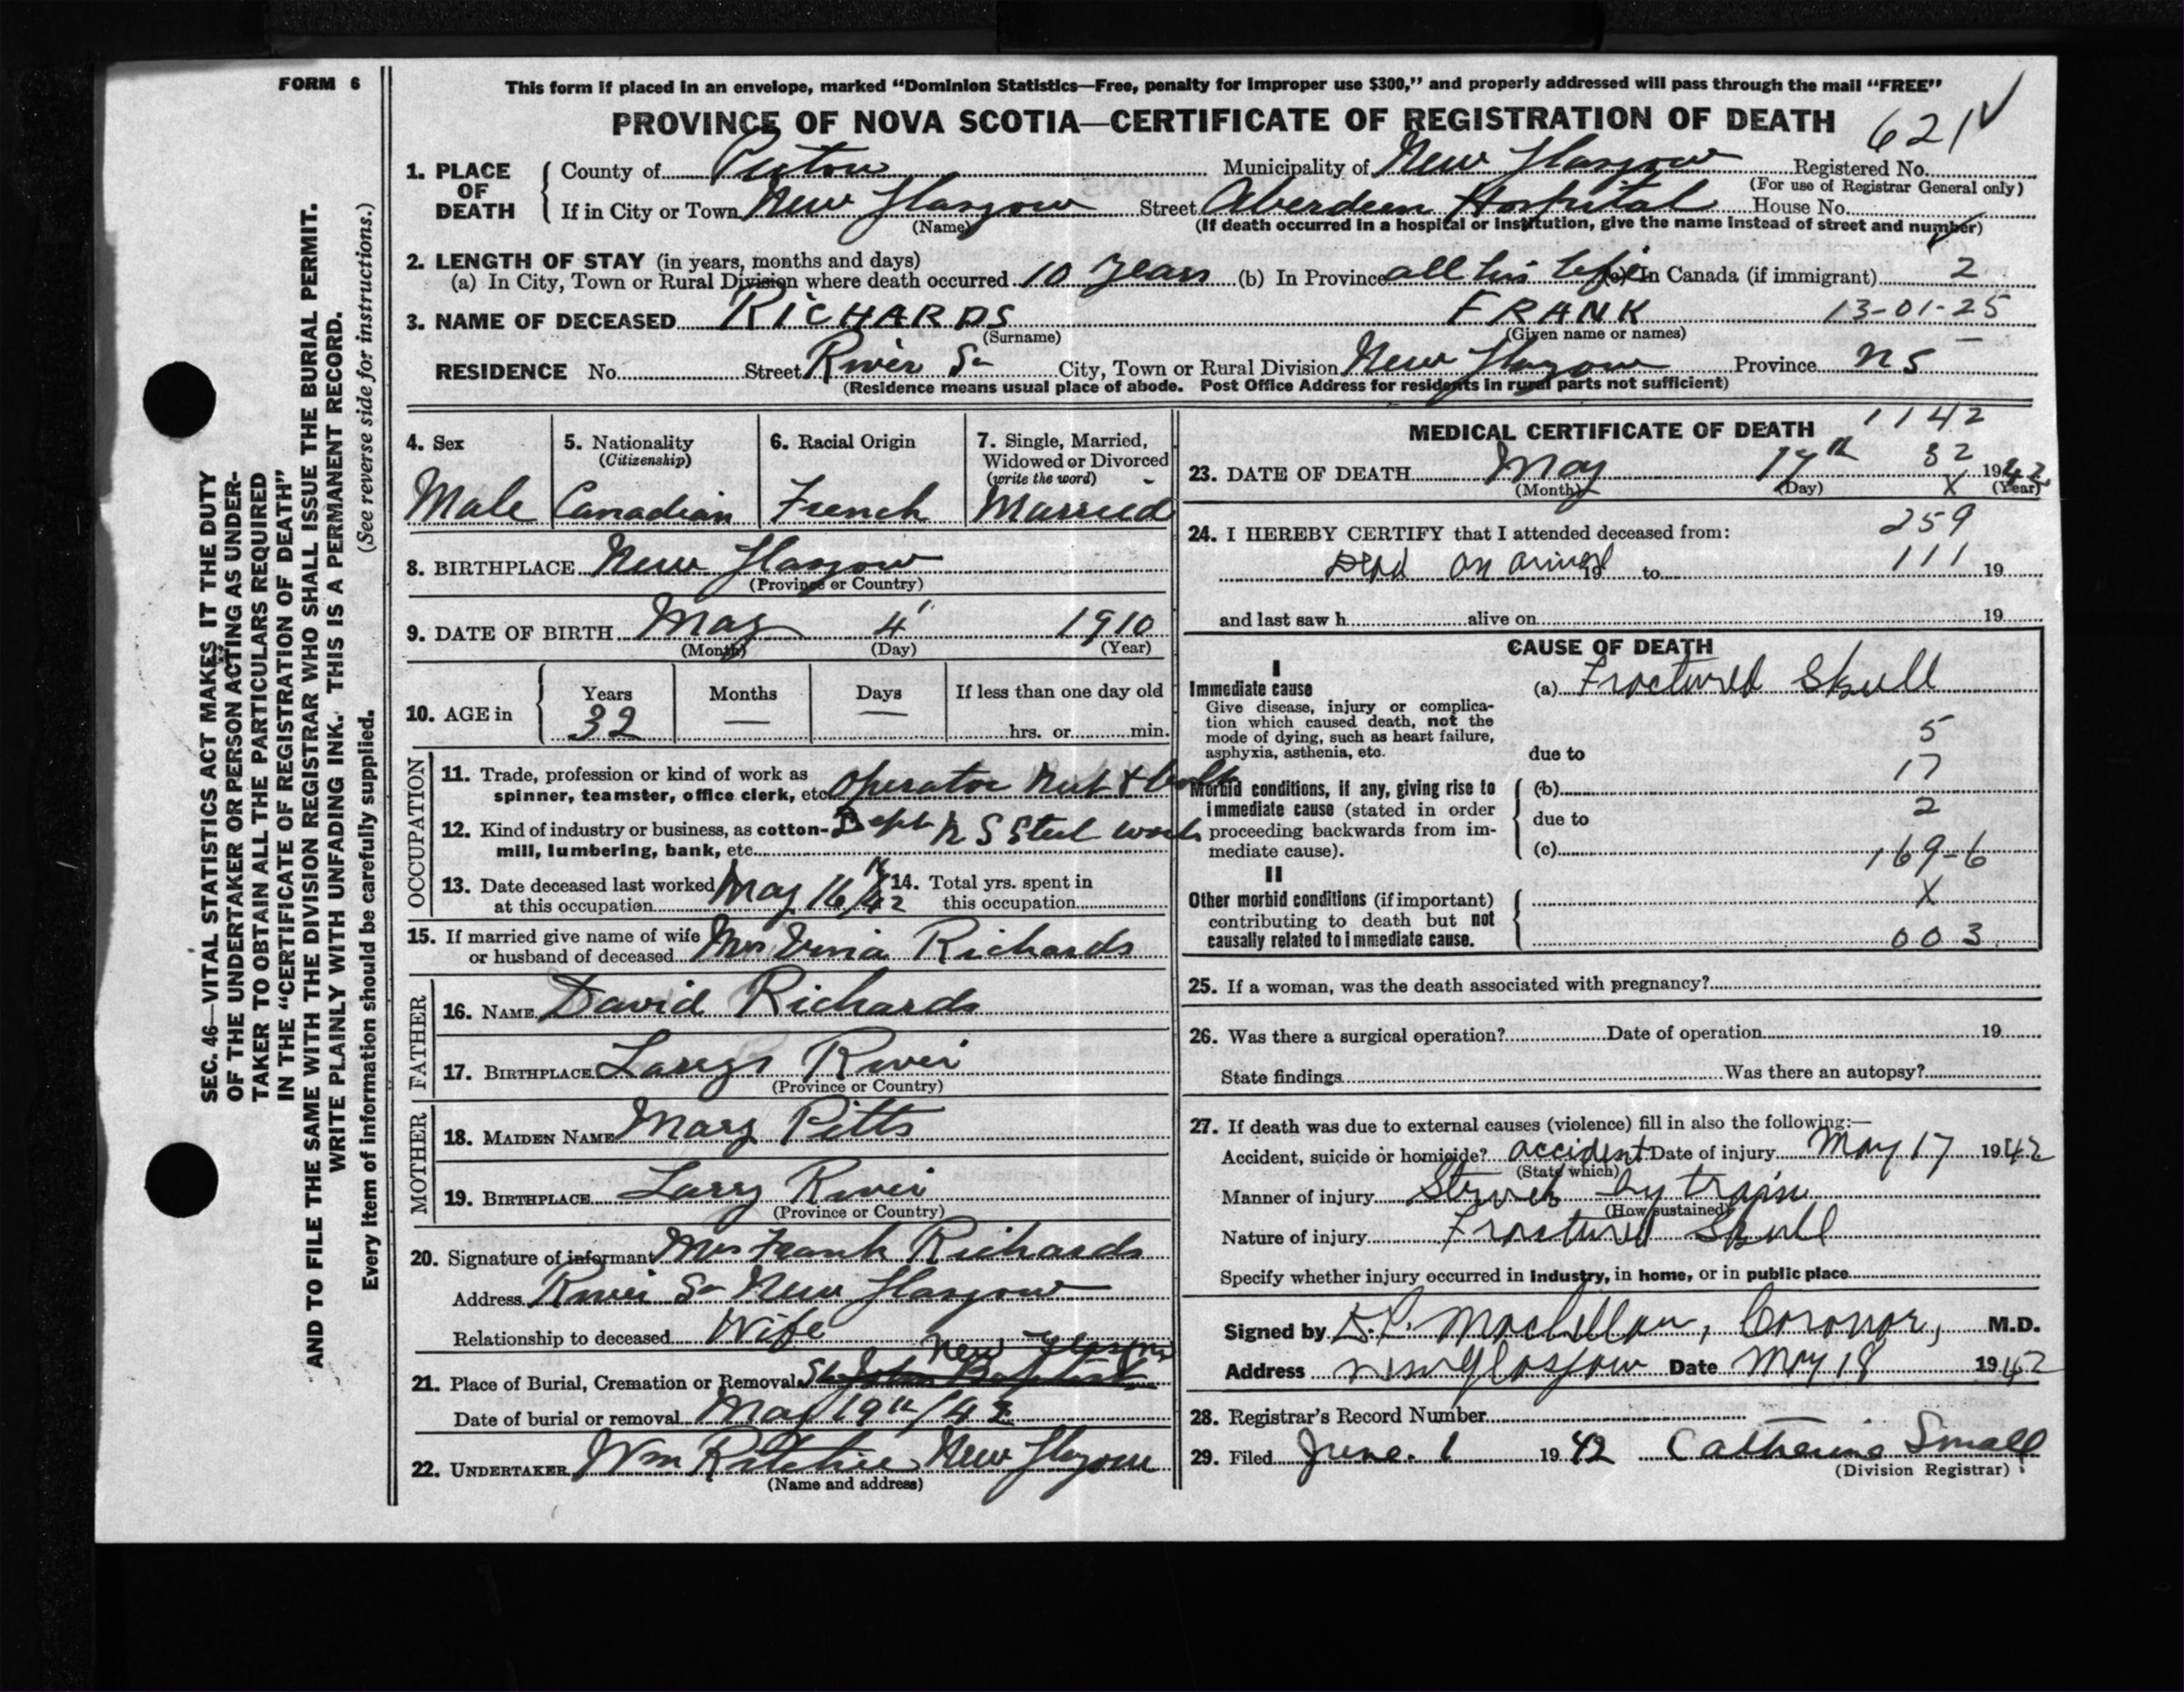 FORM 6
This form if placed in an envelope, marked "Dominion Statistics—Free, penalty for improper use $300," and properly addressed will pass through the mail "FREE"
PROVINCE OF NOVA SCOTIA—CERTIFICATE OF REGISTRATION OF DEATH
621
1. PLACE OF DEATH County of Pictou Municipality of New Glasgow Registered No.
(For use of Registrar General only)
If in City or Town New Glasgow Street Aberdeen Hospital House No.
(Name) (If death occurred in a hospital or institution, give the name instead of street and number)
2. LENGTH OF STAY (in years, months and days)
(a) In City, Town or Rural Division where death occurred 10 years (b) In Province all his life (c) In Canada (if immigrant) 2
3. NAME OF DECEASED RICHARDS FRANK 13-01-25
(Surname) (Given name or names)
RESIDENCE No. Street River St City, Town or Rural Division New Glasgow Province NS
(Residence means usual place of abode. Post Office Address for residents in rural parts not sufficient)
4. Sex
Male
5. Nationality
(Citizenship)
Canadian
6. Racial Origin
French
7. Single, Married,
Widowed or Divorced
(write the word)
Married
8. BIRTHPLACE New Glasgow
(Province or Country)
9. DATE OF BIRTH May 4 1910
(Month) (Day) (Year)
10. AGE in Years Months Days If less than one day old
32 — — hrs. or min.
OCCUPATION
11. Trade, profession or kind of work as
spinner, teamster, office clerk, etc. Operator Nut & bolt
12. Kind of industry or business, as cotton-
mill, lumbering, bank, etc. Dept N S Steel works
13. Date deceased last worked
at this occupation May 16th/42
14. Total yrs. spent in
this occupation
15. If married give name of wife
or husband of deceased Mrs Richards
FATHER
16. NAME David Richards
17. BIRTHPLACE Larrys River
(Province or Country)
MOTHER
18. MAIDEN NAME Mary Pitts
19. BIRTHPLACE Larry River
(Province or Country)
20. Signature of informant Mrs Frank Richards
Address River St New Glasgow
Relationship to deceased Wife
New Glasgow
21. Place of Burial, Cremation or Removal St John Baptist
Date of burial or removal May 19th/42
22. UNDERTAKER Wm Ritchie New Glasgow
(Name and address)
MEDICAL CERTIFICATE OF DEATH 1142
23. DATE OF DEATH May 17th 32 1942
(Month) (Day) X (Year)
259
24. I HEREBY CERTIFY that I attended deceased from:
Dead on arrival 19 to 111 19
and last saw h alive on 19
CAUSE OF DEATH
I
Immediate cause
Give disease, injury or complica-
tion which caused death, not the
mode of dying, such as heart failure,
asphyxia, asthenia, etc.
(a) Fractured Skull
5
due to
17
Morbid conditions, if any, giving rise to
immediate cause (stated in order
proceeding backwards from im-
mediate cause).
(b)
2
due to
(c) 169-6
II
Other morbid conditions (if important)
contributing to death but not
causally related to immediate cause.
X
003
25. If a woman, was the death associated with pregnancy?
26. Was there a surgical operation? Date of operation 19
State findings Was there an autopsy?
27. If death was due to external causes (violence) fill in also the following:—
Accident, suicide or homicide? accident Date of injury May 17 1942
(State which)
Manner of injury Struck by train
(How sustained)
Nature of injury Fractured Skull
Specify whether injury occurred in industry, in home, or in public place
Signed by MacLellan, Coronor, M.D.
Address New Glasgow Date May 18 1942
28. Registrar's Record Number
29. Filed June 1 1942 Catherine Small
(Division Registrar)
SEC. 46—VITAL STATISTICS ACT MAKES IT THE DUTY
OF THE UNDERTAKER OR PERSON ACTING AS UNDER-
TAKER TO OBTAIN ALL THE PARTICULARS REQUIRED
IN THE "CERTIFICATE OF REGISTRATION OF DEATH"
AND TO FILE THE SAME WITH THE DIVISION REGISTRAR WHO SHALL ISSUE THE BURIAL PERMIT.
WRITE PLAINLY WITH UNFADING INK. THIS IS A PERMANENT RECORD.
(See reverse side for instructions.)
Every item of information should be carefully supplied.